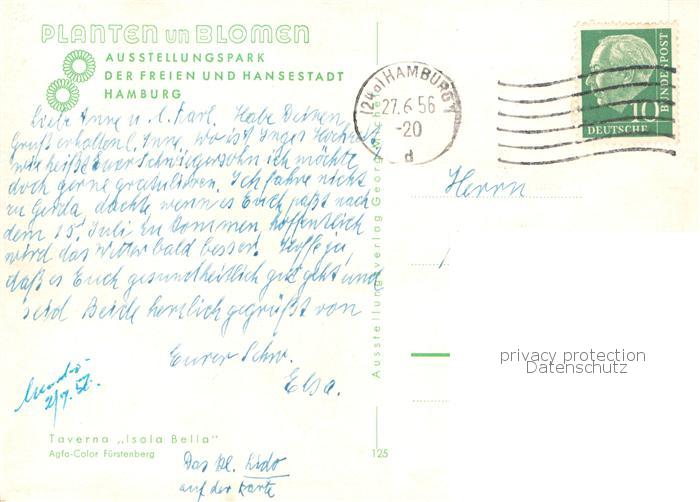 PLANTEN un BLOMEN
AUSSTELLUNGSPARK
DER FREIEN UND HANSESTADT
HAMBURG
Liebe Anne u. l. Karl. Habe Deinen
Gruß erhalten l. Anne, wo ist Inges Hochzeit,
wie heißt Euer Schwiegersohn ich möchte
doch gerne gratulieren. Ich fahre nicht
zu Gerda, dachte, wenn es Euch paßt nach
dem 15. Juli zu kommen, hoffentlich
wird das Wetter bald besser. Hoffe ja,
daß es Euch gesundheitlich gut geht und
seid Beide herzlich gegrüßt von
Eurer Schw.
Elsa.
Taverna „Isola Bella"
Agfa-Color Fürstenberg
125
Das kl. Lido
auf der Karte
Ausstellungsverlag Georg
(24a) HAMBURG 1
27.6.56
-20
d
10
DEUTSCHE
BUNDESPOST
Herrn
privacy protection
Datenschutz